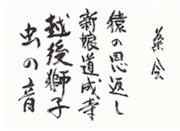 葵会
猿の恩返し
新娘道成寺
越後獅子
虫の音